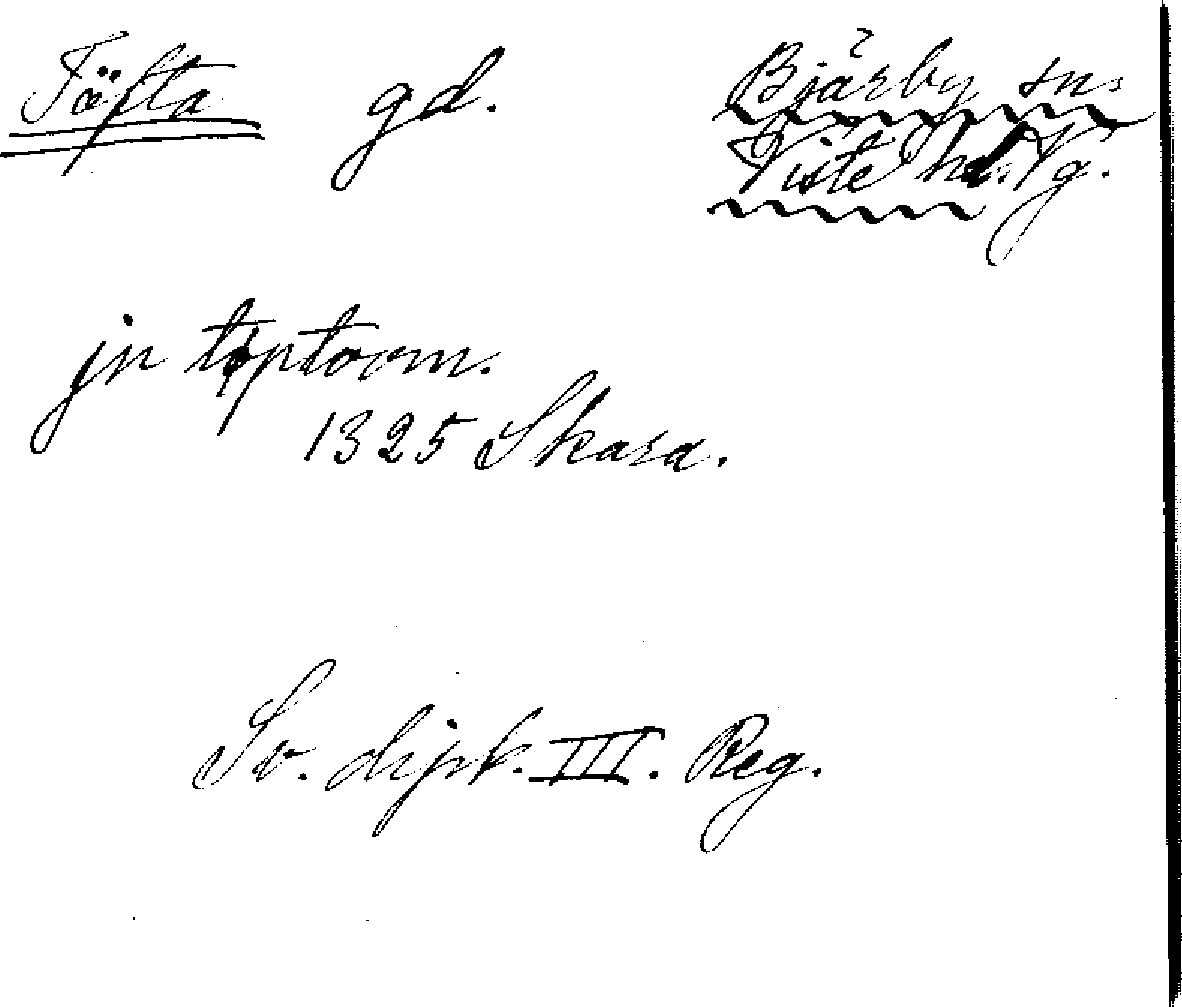 Täfta gd. Bjärby sn.
Viste hd. Vg.
jn toptorm.
1325 Skara.
Sv. dipl. III. Reg.